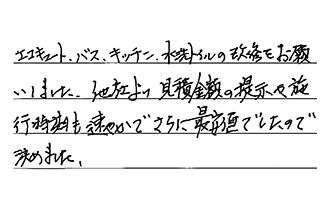 エコキュート、バス、キッチン、水洗トイルの改修をお願
いしました。他社より見積金額の提示や施
行時期も速やかでさらに最安値でしたので
決めました。